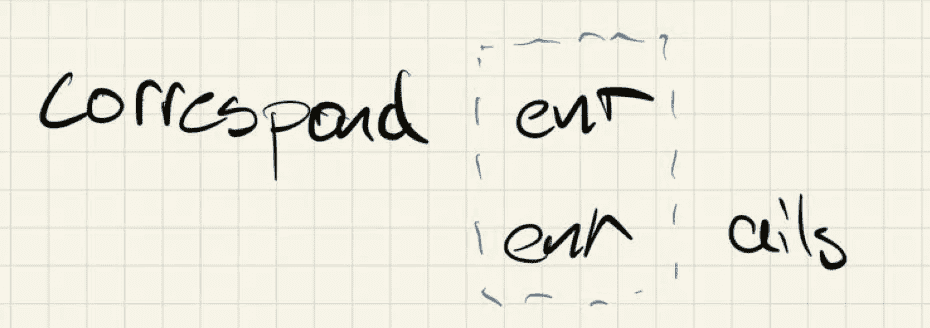 correspond ent
ent ails